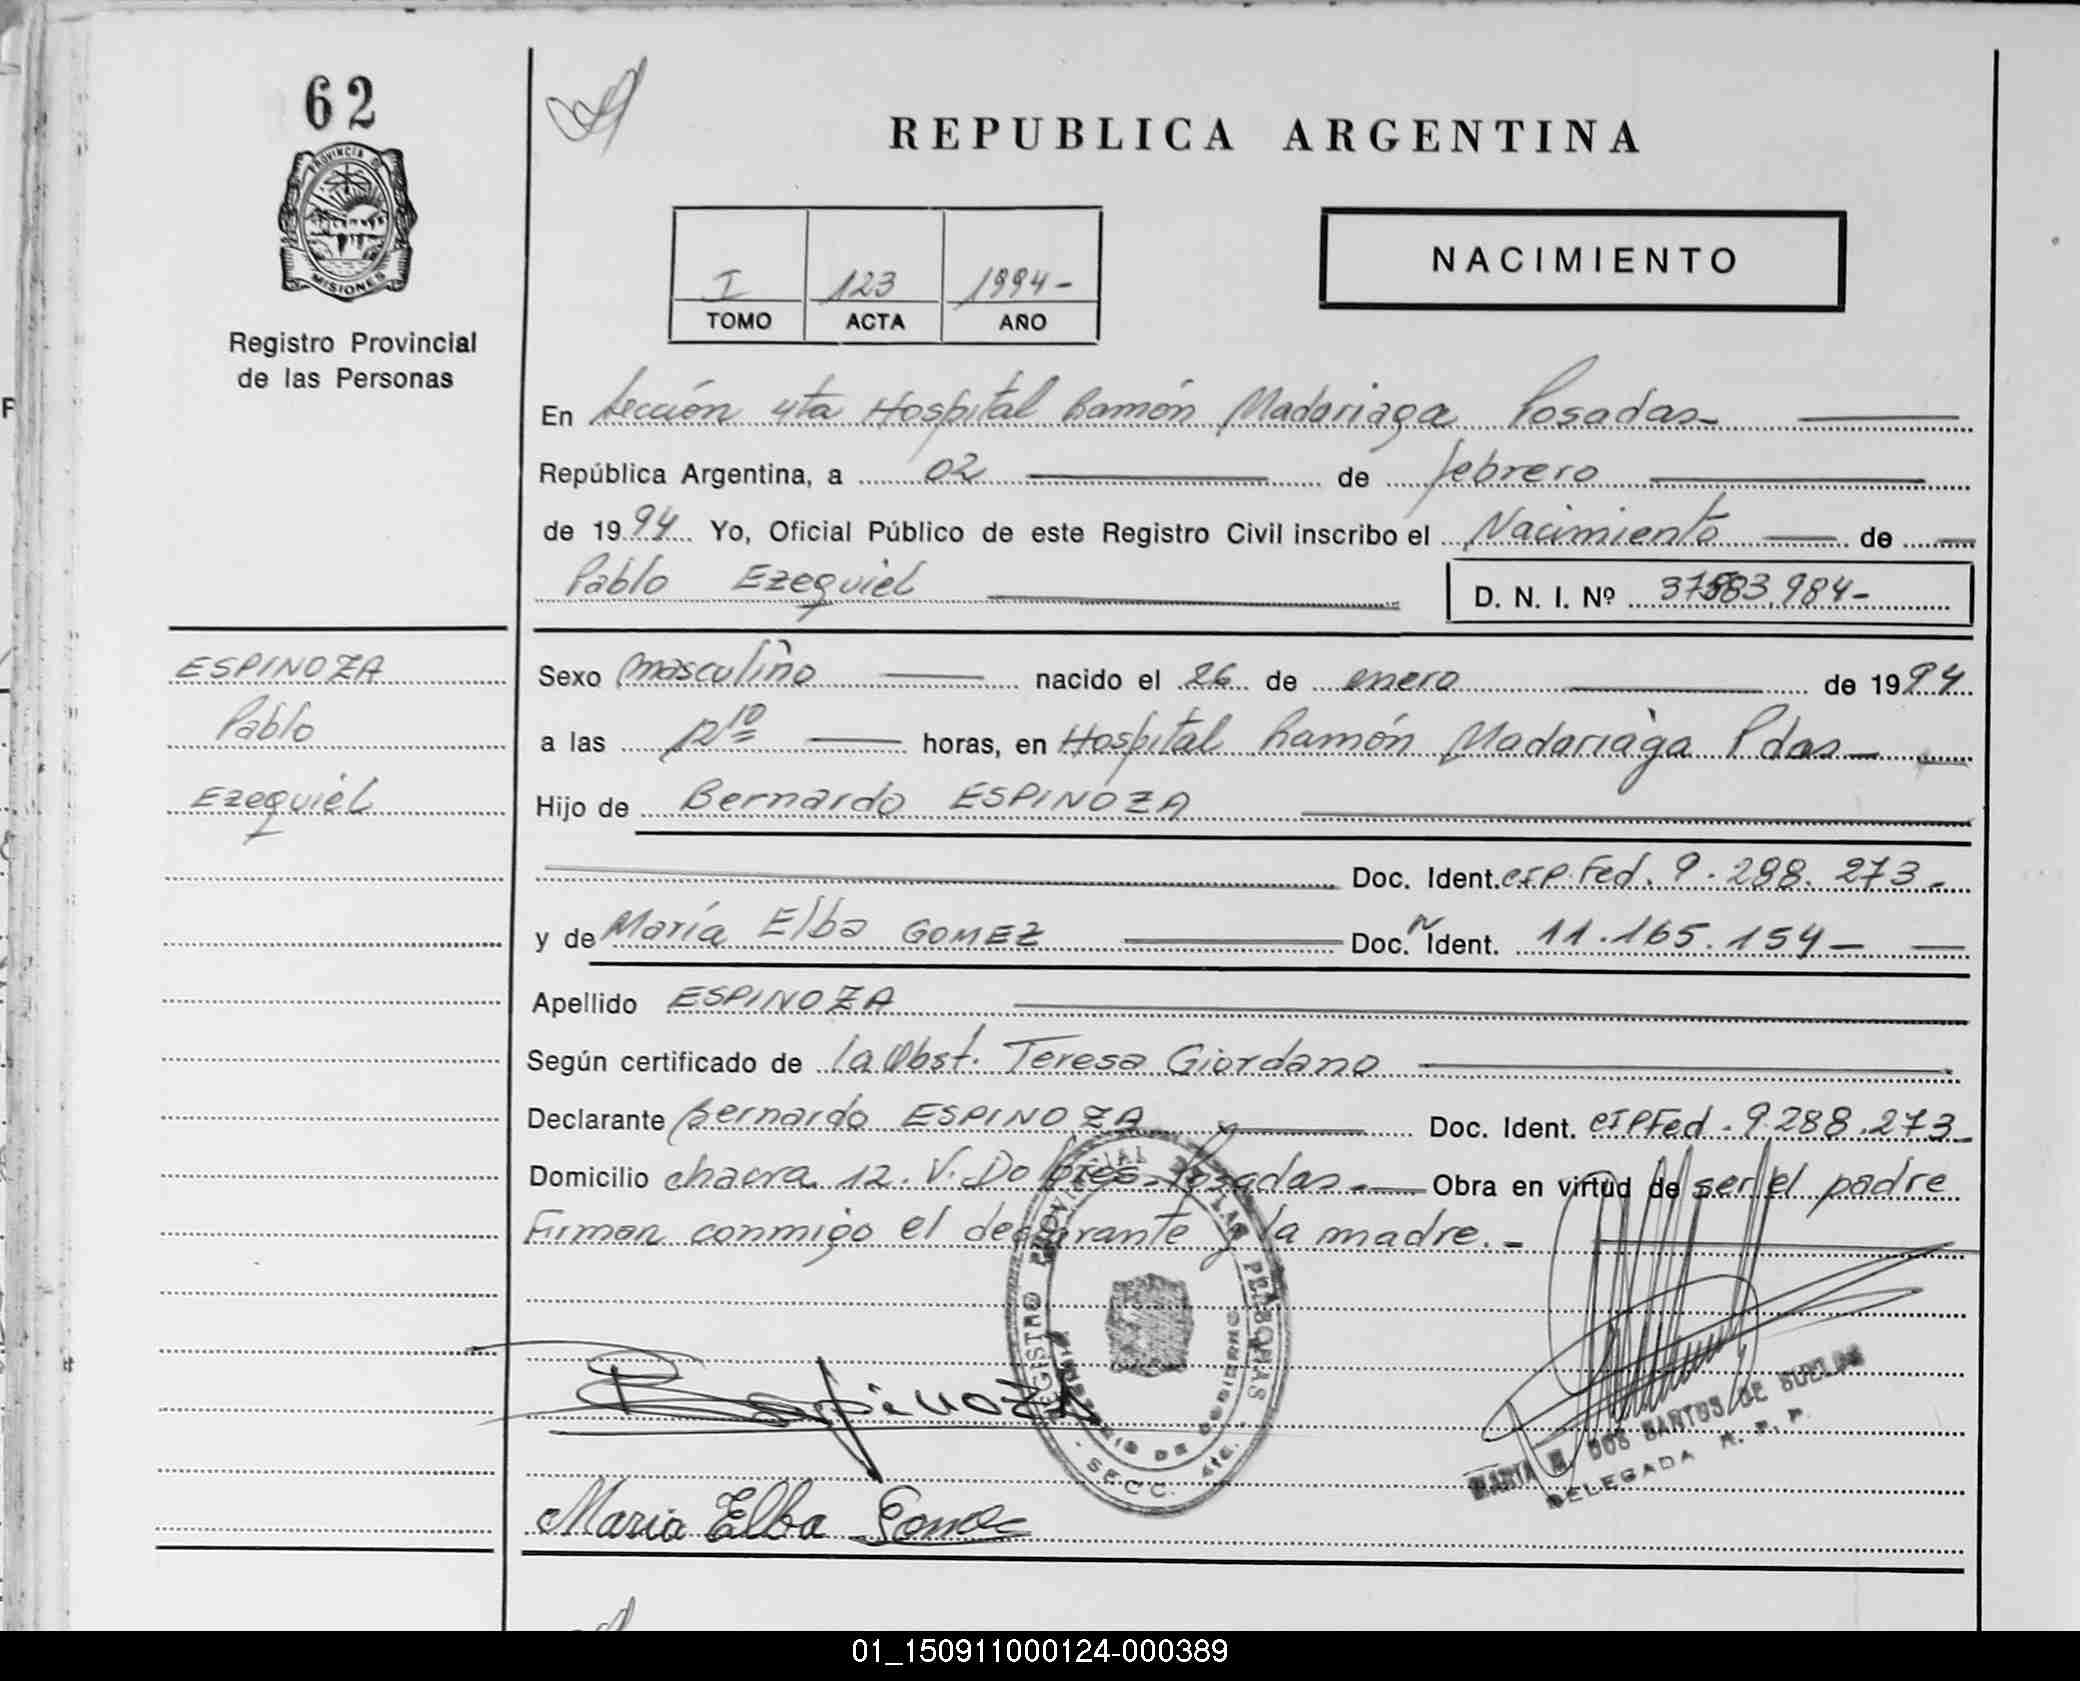 62
PROVINCIA DE
MISIONES
Registro Provincial
de las Personas
REPUBLICA ARGENTINA
I 123 1994-
TOMO ACTA AÑO
NACIMIENTO
En Sección 4ta Hospital Ramón Madariaga Posadas-
República Argentina, a 02 de febrero
de 1994 Yo, Oficial Público de este Registro Civil inscribo el Nacimiento de
Pablo Ezequiel D. N. I. Nº
ESPINOZA
Pablo
Ezequiel
Sexo masculino nacido el 26 de enero de 1994
a las 12 10 horas, en Hospital Ramón Madariaga Pdas-
Hijo de Bernardo ESPINOZA
Doc. Ident. CIP.Fed. 9.288.273.-
y de María Elba GOMEZ Doc. N Ident. 11.165.154-
Apellido ESPINOZA
Según certificado de la Obst. Teresa Giordano
Declarante Bernardo ESPINOZA Doc. Ident. CIPFed. 9.288.273-
Domicilio chacra 12. V. Dolores-Posadas.- Obra en virtud de ser el padre
Firman conmigo el declarante y la madre.-
REGISTRO PROVINCIAL DE LAS PERSONAS
MINISTERIO DE GOBIERNO
SECC. 4ta.
Espinoza
MARTA DOS SANTOS DE
DELEGADA R. P. P.
Maria Elba Gomez
01_150911000124-000389